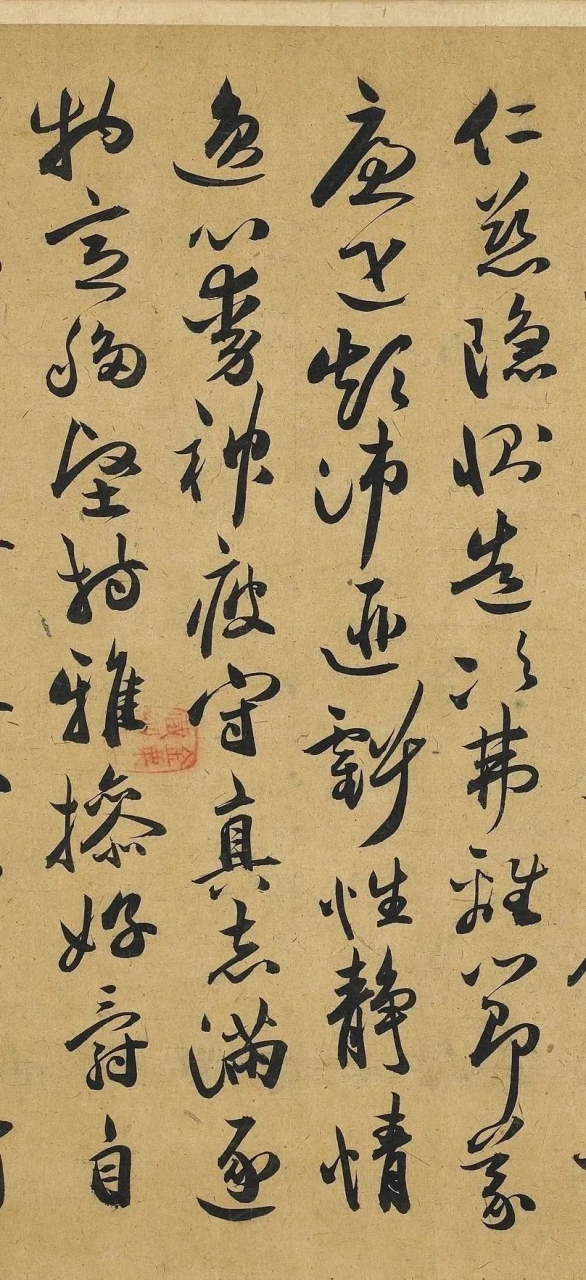 仁慈隐恻造次弗離節義
廉退顛沛匪虧性静情
逸心動神疲守真志滿逐
物意移堅持雅操好爵自